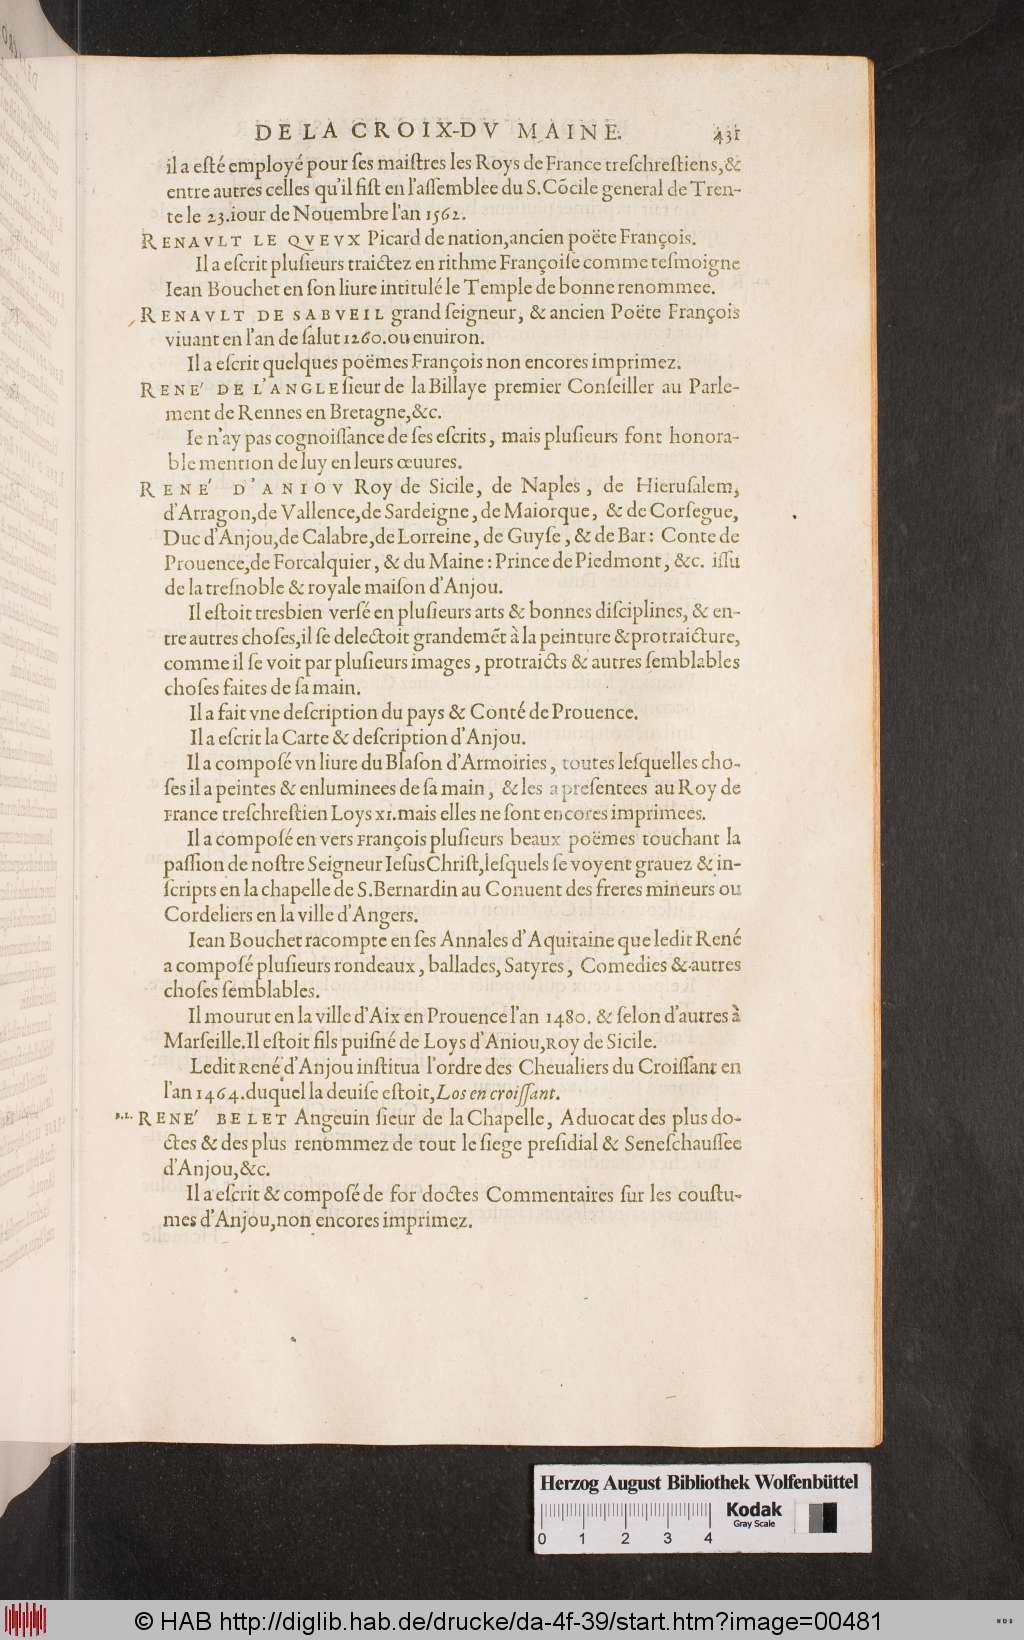 DE LA CROIX-DV MAINE. 431
il a eſté employé pour ſes maiſtres les Roys de France treſchreſtiens, &
entre autres celles qu'il fiſt en l'aſſemblee du S. Cõcile general de Tren-
te le 23. iour de Nouembre l'an 1562.
RENAVLT LE QVEVX Picard de nation, ancien poëte François.
Il a eſcrit pluſieurs traictez en rithme Françoiſe comme teſmoigne
Iean Bouchet en ſon liure intitulé le Temple de bonne renommee.
RENAVLT DE SABVEIL grand ſeigneur, & ancien Poëte François
viuant en l'an de ſalut 1260. ou enuiron.
Il a eſcrit quelques poëmes François non encores imprimez.
RENE' DE L'ANGLE ſieur de la Billaye premier Conſeiller au Parle-
ment de Rennes en Bretagne, &c.
Ie n'ay pas cognoiſſance de ſes eſcrits, mais pluſieurs font honora-
ble mention de luy en leurs œuures.
RENE' D'ANIOV Roy de Sicile, de Naples, de Hieruſalem,
d'Arragon, de Vallence, de Sardeigne, de Maiorque, & de Corſegue,
Duc d'Anjou, de Calabre, de Lorreine, de Guyſe, & de Bar: Conte de
Prouence, de Forcalquier, & du Maine: Prince de Piedmont, &c. iſſu
de la treſnoble & royale maiſon d'Anjou.
Il eſtoit tresbien verſé en pluſieurs arts & bonnes diſciplines, & en-
tre autres choſes, il ſe delectoit grandemẽt à la peinture & protraicture,
comme il ſe voit par pluſieurs images, protraicts & autres ſemblables
choſes faites de ſa main.
Il a fait vne deſcription du pays & Conté de Prouence.
Il a eſcrit la Carte & deſcription d'Anjou.
Il a compoſé vn liure du Blaſon d'Armoiries, toutes leſquelles cho-
ſes il a peintes & enluminees de ſa main, & les a preſentees au Roy de
France treſchreſtien Loys XI. mais elles ne ſont encores imprimees.
Il a compoſé en vers François pluſieurs beaux poëmes touchant la
paſſion de noſtre Seigneur Ieſus Chriſt, leſquels ſe voyent grauez & in-
ſcripts en la chapelle de S. Bernardin au Conuent des freres mineurs ou
Cordeliers en la ville d'Angers.
Iean Bouchet racompte en ſes Annales d'Aquitaine que ledit René
a compoſé pluſieurs rondeaux, ballades, Satyres, Comedies & autres
choſes ſemblables.
Il mourut en la ville d'Aix en Prouence l'an 1480. & ſelon d'autres à
Marſeille. Il eſtoit fils puiſné de Loys d'Aniou, Roy de Sicile.
Ledit René d'Anjou inſtitua l'ordre des Cheualiers du Croiſſant en
l'an 1464. duquel la deuiſe eſtoit, Los en croiſſant.
RENE' BELET Angeuin ſieur de la Chapelle, Aduocat des plus do-
ctes & des plus renommez de tout le ſiege preſidial & Seneſchauſſee
d'Anjou, &c.
Il a eſcrit & compoſé de for doctes Commentaires ſur les couſtu-
mes d'Anjou, non encores imprimez.
Herzog August Bibliothek Wolfenbüttel
Kodak
Gray Scale
0 1 2 3 4
© HAB http://diglib.hab.de/drucke/da-4f-39/start.htm?image=00481